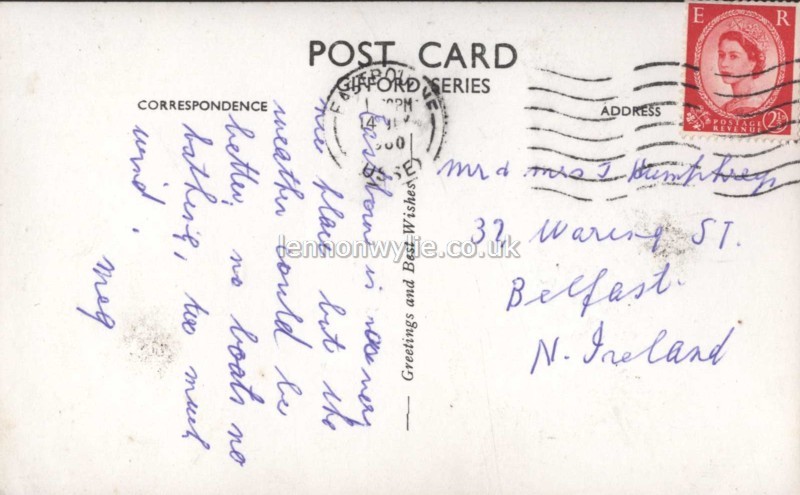 POST CARD
GIFFORD SERIES
CORRESPONDENCE
ADDRESS
E R
POSTAGE
REVENUE
EASTBOURNE
PM
1960
SUSSEX
Eastbourne is very
nice place but the
weather could be
better, no boats no
bathing, too much
wind.
Meg
Greetings and Best Wishes
Mr & Mrs J Humphreys
32 Waring St.
Belfast.
N. Ireland
lennonwylie.co.uk